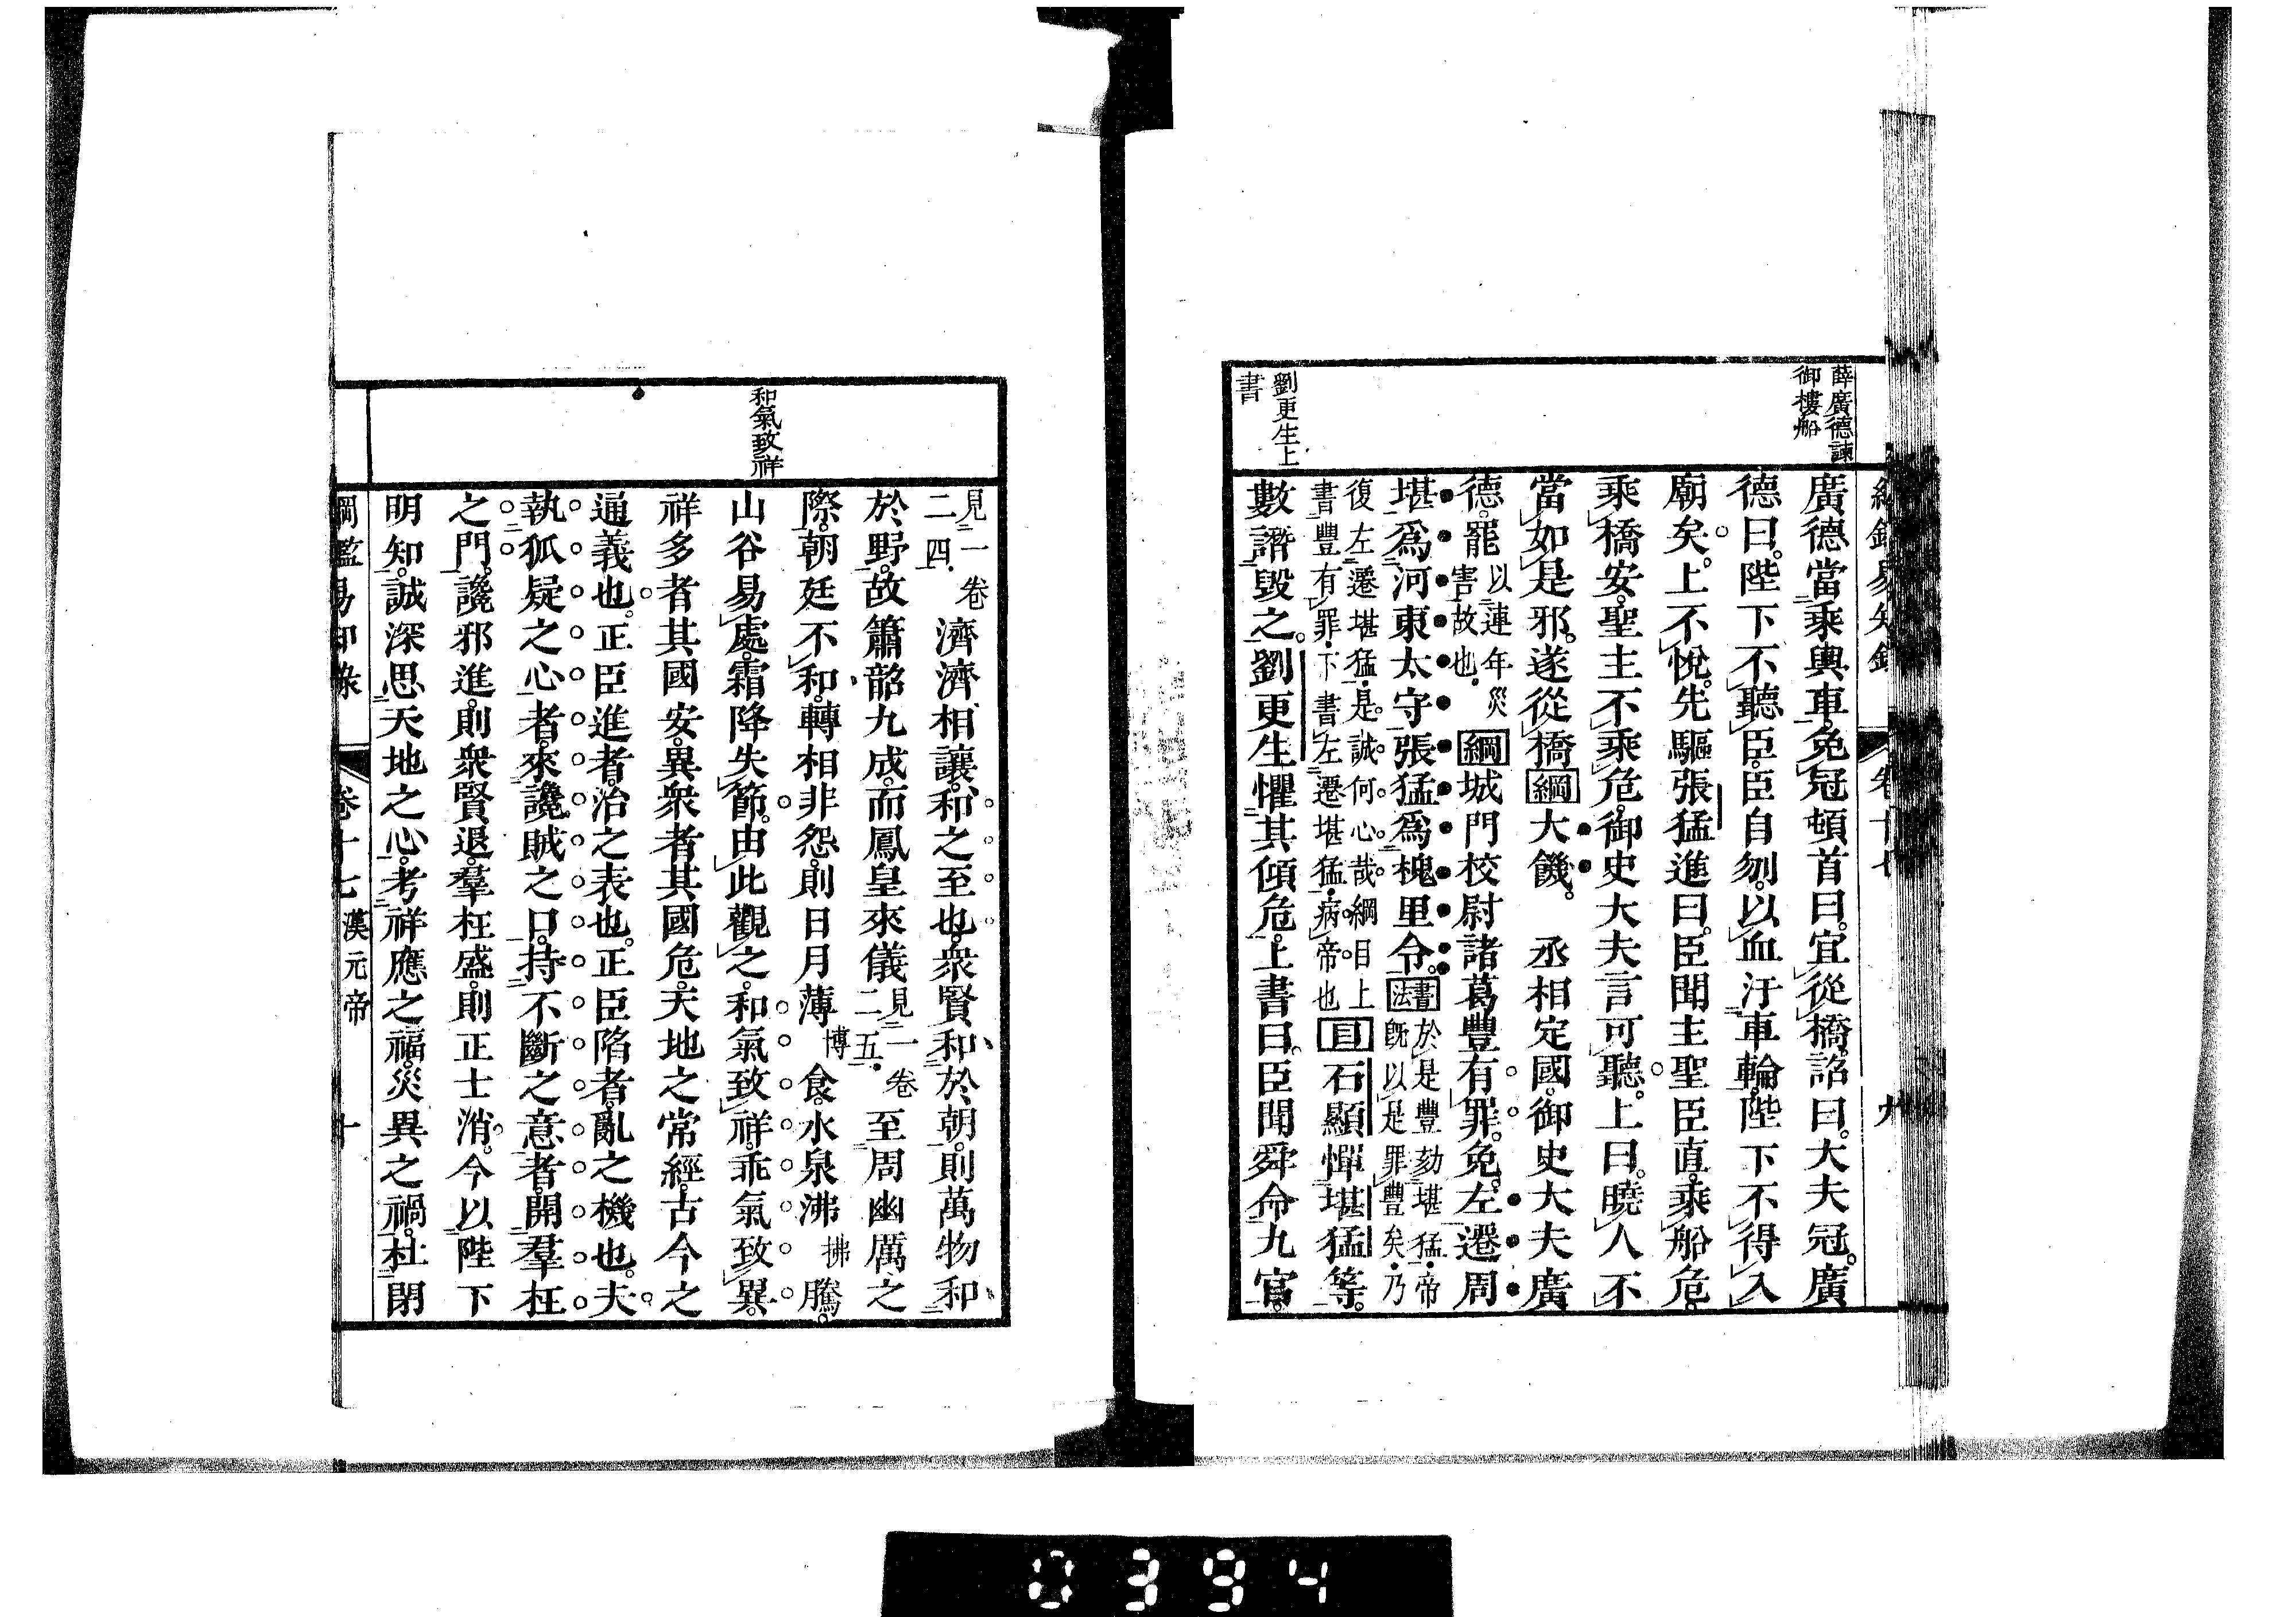 薛廣德諫
御樓船
劉更生上
書
廣德當乘輿車免冠頓首曰宜從橋詔曰大夫冠廣
德曰陛下不聽臣臣自刎以血汙車輪陛下不得入
廟矣上不悅先驅張猛進曰臣聞主聖臣直乘船危
乘橋安聖主不乘危御史大夫言可聽上曰曉人不
當如是邪遂從橋綱大饑 丞相定國御史大夫廣
德罷以連年災害故也綱城門校尉諸葛豐有罪免左遷周
堪爲河東太守張猛爲槐里令書法於是豐劾堪猛帝既以是罪豐矣乃
復左遷堪猛是誠何心哉綱目上書豐有罪下書左遷堪猛病帝也目石顯憚堪猛等
數譖毀之劉更生懼其傾危上書曰臣聞舜命九官
和氣致祥
見一卷二四濟濟相讓和之至也衆賢和於朝則萬物和
於野故簫韶九成而鳳皇來儀見一卷二五至周幽厲之
際朝廷不和轉相非怨則日月薄博食水泉沸拂騰
山谷易處霜降失節由此觀之和氣致祥乖氣致異
祥多者其國安異衆者其國危天地之常經古今之
通義也正臣進者治之表也正臣陷者亂之機也夫
執狐疑之心者來讒賊之口持不斷之意者開羣枉
之門讒邪進則衆賢退羣枉盛則正士消今以陛下
明知誠深思天地之心考祥應之福災異之禍杜閉
綱鑑易知錄 卷十七 漢元帝 十